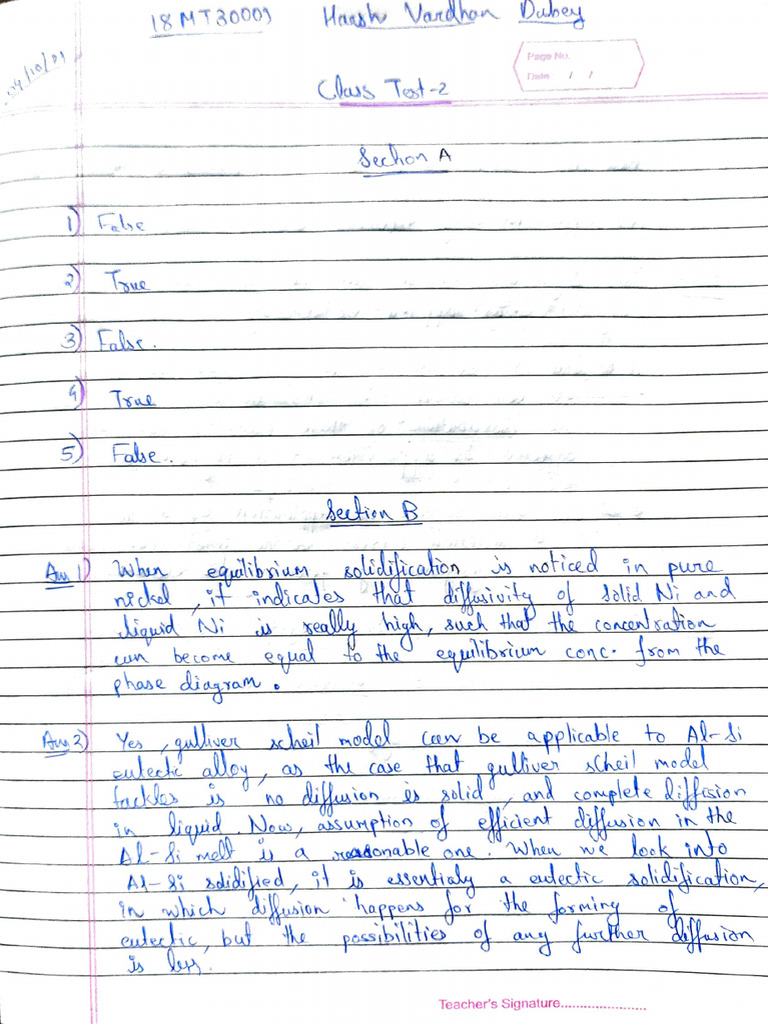 18MT30009 Harsh Vardhan Dubey
04/10/21
Page No.
Date / /
Class Test-2
Section A
1) False
2) True
3) False.
4) True
5) False.
Section B
Ans 1) When equilibrium solidification is noticed in pure
nickel, it indicates that diffusivity of solid Ni and
liquid Ni is really high, such that the concentration
can become equal to the equilibrium conc. from the
phase diagram.
Ans 2) Yes, gulliver scheil model can be applicable to Al-Si
eutectic alloy, as the case that gulliver scheil model
tackles is no diffusion is solid, and complete diffusion
in liquid. Now, assumption of efficient diffusion in the
Al-Si melt is a reasonable one. When we look into
Al-Si solidified, it is essentialy a eutectic solidification,
in which diffusion happens for the forming of
eutectic, but the possibilities of any further diffusion
is less.
Teacher's Signature.....................